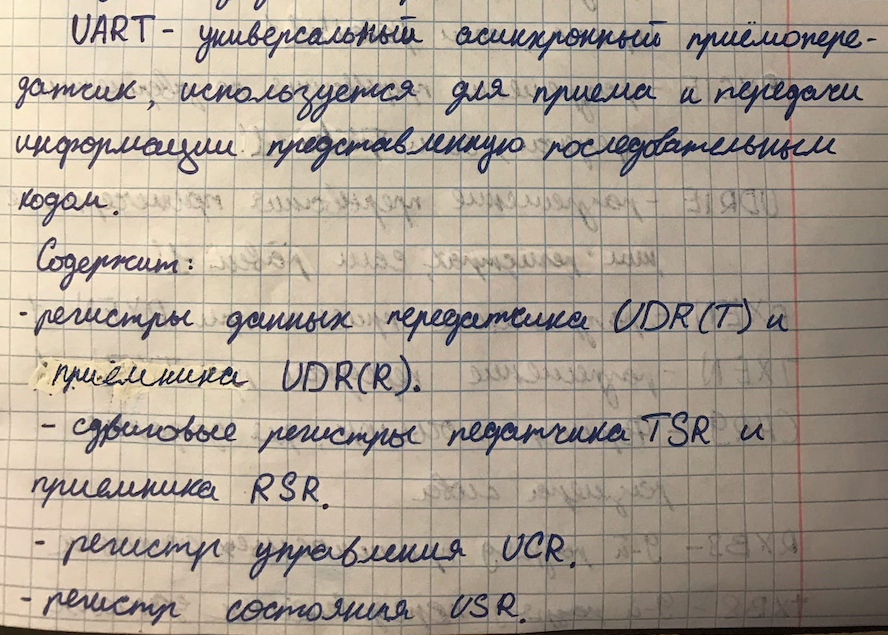 UART - универсальный асинхронный приёмопере-
датчик, используется для приема и передачи
информации представленную последовательным
кодом.
Содержит:
- регистры данных передатчика UDR(T) и
приёмника UDR(R).
- сдвиговые регистры педатчика TSR и
приемника RSR.
- регистр управления UCR.
- регистр состояния USR.